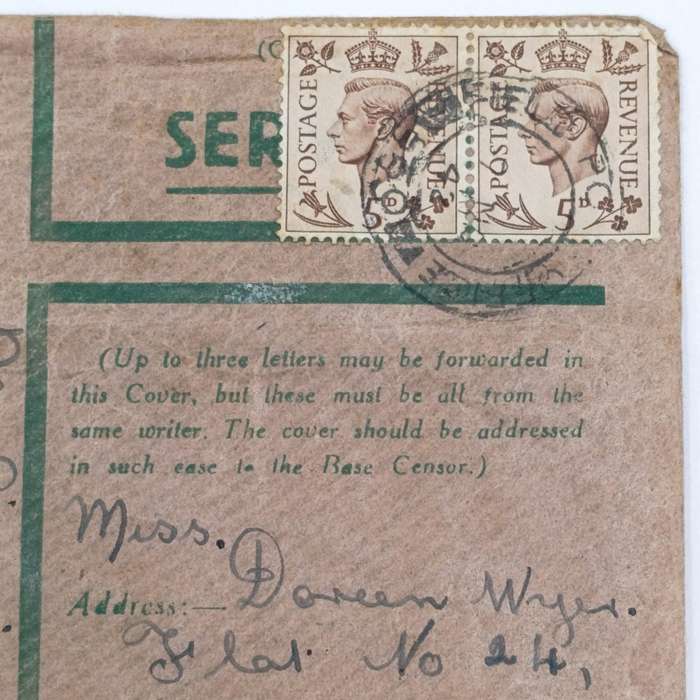 SER
POSTAGE REVENUE 5D
POSTAGE REVENUE 5D
(Up to three letters may be forwarded in
this Cover, but these must be all from the
same writer. The cover should be addressed
in such case to the Base Censor.)
Miss.
Address:— Doreen Wyer.
Flat No 24,